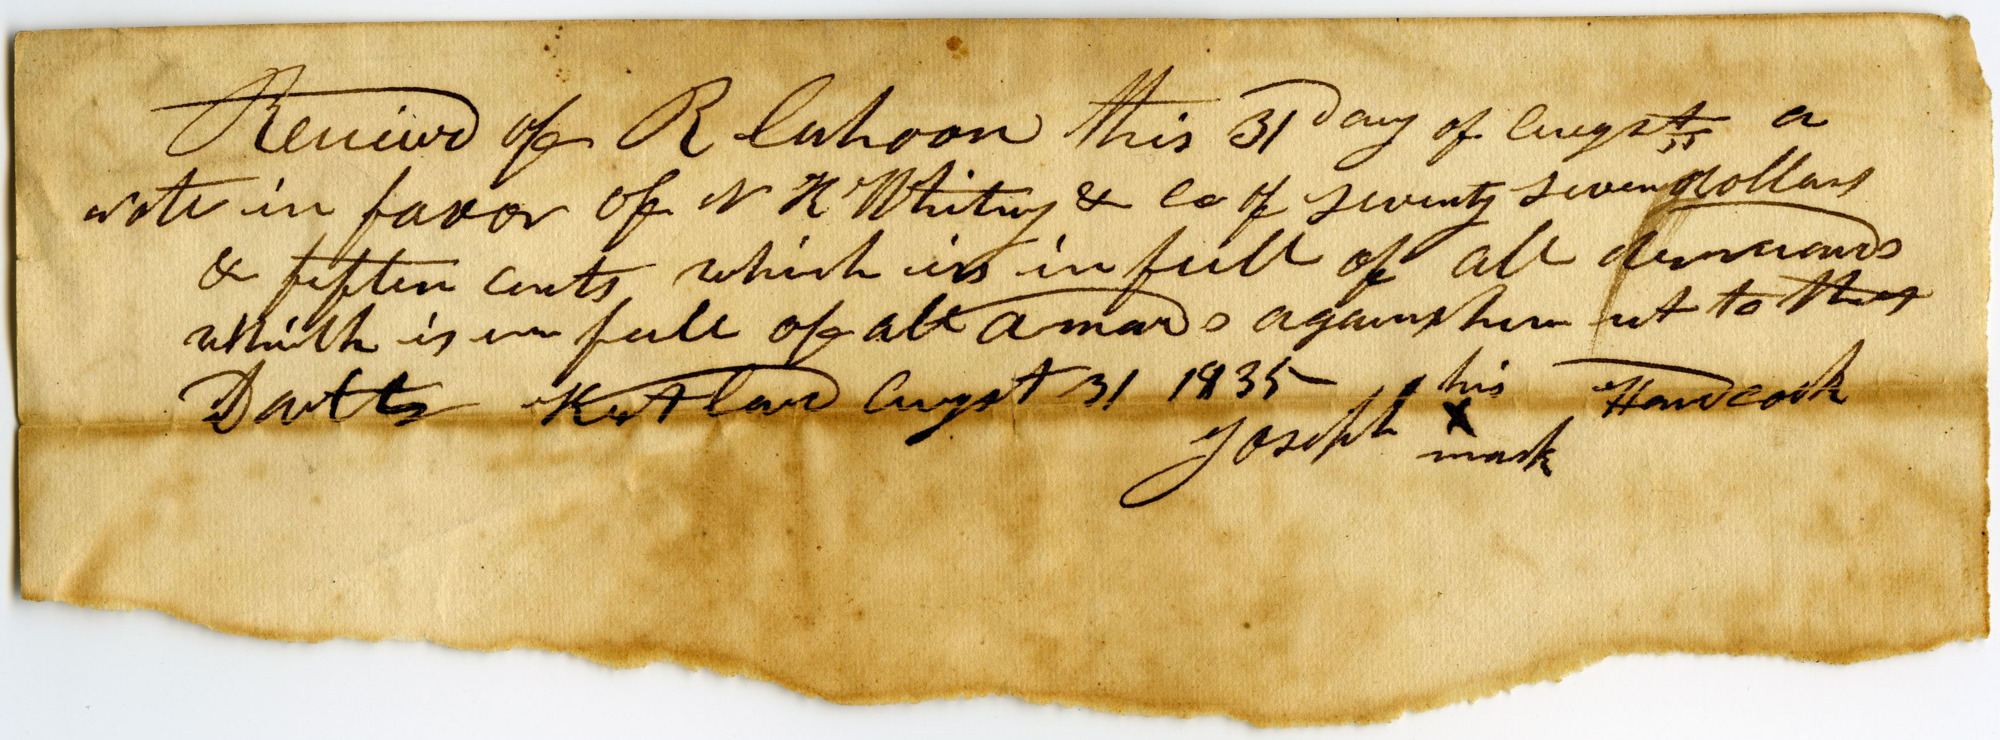 Receiievd of R Cahoon this 31 Day of Augst a
note in favor of N K Whitny & Co of seventy seven dollars
& fiften cents which is in full of all demands
whith is in full of all amands against him ut to this
Datte Kirtland Augst 31 1835
Joseph his X mark Handcock